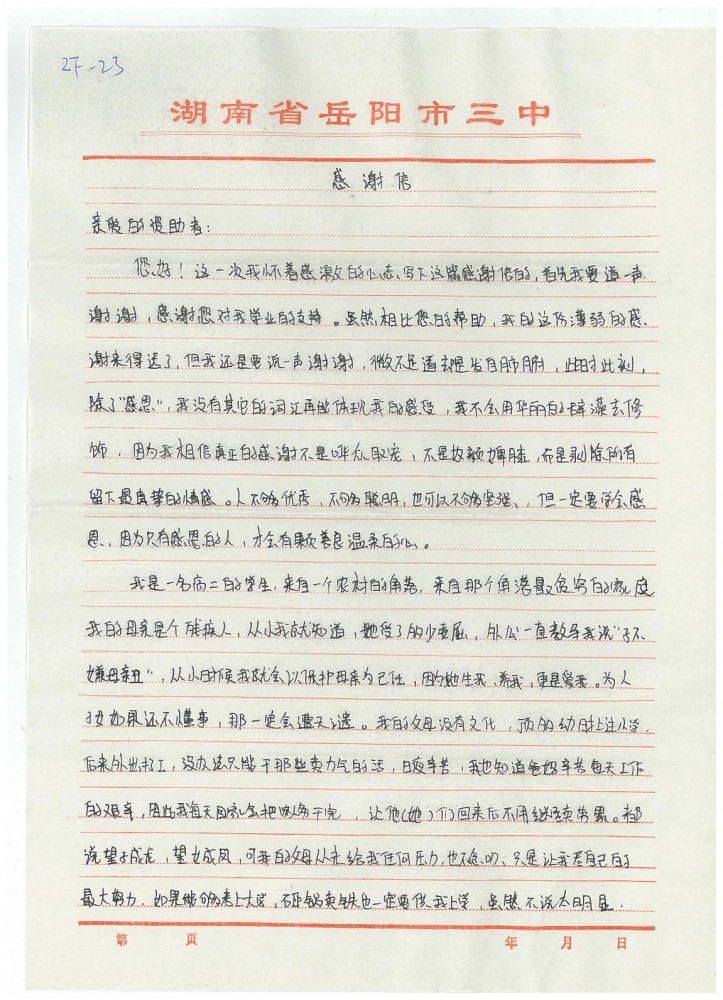 27-23
湖南省岳阳市三中
感谢信
亲爱的资助者：
您好！这一次我怀着感激的心态写下这篇感谢信的，首先我要道一声
谢谢，感谢您对我学业的支持。虽然相比您的帮助，我的这份薄弱的感
谢来得迟了，但我还是要说一声谢谢，微不足道却是发自肺腑，此时此刻，
除了"感恩"，我没有其它的词汇再能体现我的感受，我不会用华丽的辞藻去修
饰，因为我相信真正的感谢不是哗众取宠，不是奴颜婢膝，而是剥除所有
留下最真挚的情感。人不够优秀，不够聪明，也可以不够坚强、但一定要学会感
恩、因为只有感恩的人，才会有颗善良温柔的心。
我是一名高二的学生，来自一个农村的角落，来自那个角落最贫穷的家庭
我的母亲是个残疾人，从小我就知道，她受了的少委屈，外公一直教导我说"子不
嫌母亲丑"，从小时候我就会以保护母亲为己任，因为她生我、养我，更是爱我。为人
子女如果还不懂事，那一定会遭天谴。我的父母没有文化，顶的幼时上过小学，
后来外出打工，没办法只能干那些卖力气的活，日疲辛苦，我也知道爸妈辛苦每天工作
的艰辛，因此我每天回家会把家务干完，让他(她)们回来后不用继续劳累。都
说望子成龙，望女成凤，可我的父母从未给我任何压力，也不急切、只是让我尽自己的
最大努力．如果能够考上大学，砸锅卖铁也一定要供我上学，虽然不说太明显．
第 页 年 月 日